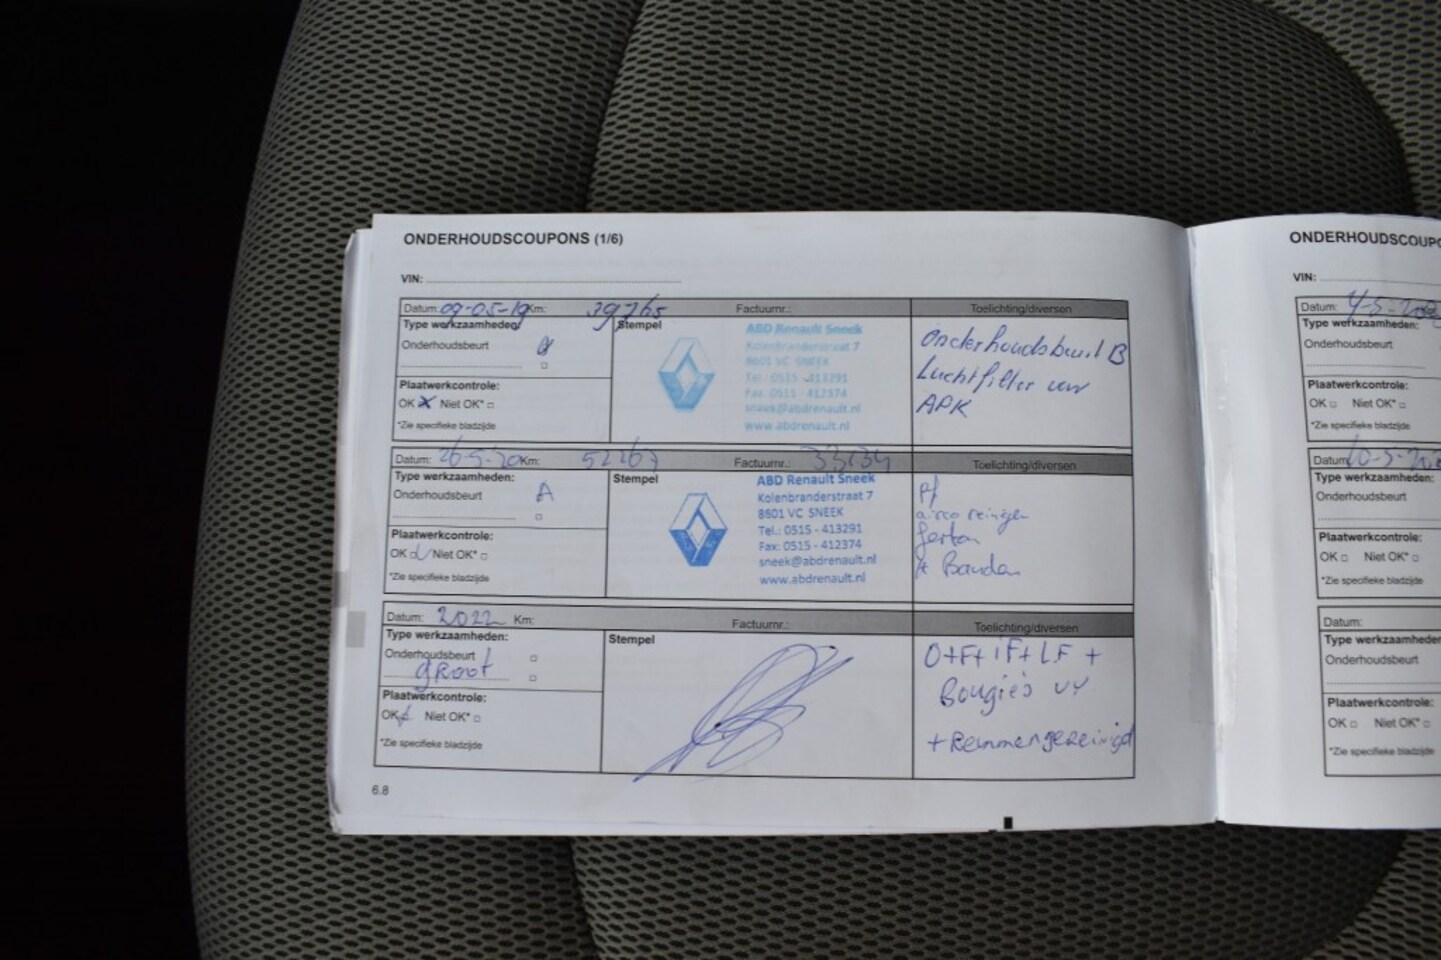 ONDERHOUDSCOUPONS (1/6)
VIN:
Datum: 09-05-19 Km: 39765 Factuurnr.: Toelichting/diversen
Type werkzaamheden: Stempel
Onderhoudsbeurt
Plaatwerkcontrole:
OK x Niet OK*
*Zie specifieke bladzijde
ABD Renault Sneek
Kolenbranderstraat 7
8601 VC SNEEK
Tel.: 0515 - 413291
Fax: 0515 - 412374
sneek@abdrenault.nl
www.abdrenault.nl
Onderhoudsbeurt B
Luchtfilter
APK
Datum: 26-5-20 Km: Factuurnr.: Toelichting/diversen
Type werkzaamheden: Stempel
Onderhoudsbeurt A
Plaatwerkcontrole:
OK Niet OK*
*Zie specifieke bladzijde
ABD Renault Sneek
Kolenbranderstraat 7
8601 VC SNEEK
Tel.: 0515 - 413291
Fax: 0515 - 412374
sneek@abdrenault.nl
www.abdrenault.nl
airco reinigen
Datum: 2022 Km: Factuurnr.: Toelichting/diversen
Type werkzaamheden: Stempel
Onderhoudsbeurt
GROOT
Plaatwerkcontrole:
OK Niet OK*
*Zie specifieke bladzijde
O+F+iF+LF+
Bougies
+ Remmen gereinigd
6.8
ONDERHOUDSCOUPO
VIN:
Datum: 4-5-
Type werkzaamheden:
Onderhoudsbeurt
Plaatwerkcontrole:
OK Niet OK*
*Zie specifieke bladzijde
Datum:
Type werkzaamheden:
Onderhoudsbeurt
Plaatwerkcontrole:
OK Niet OK*
*Zie specifieke bladzijde
Datum:
Type werkzaamheden
Onderhoudsbeurt
Plaatwerkcontrole:
OK Niet OK*
*Zie specifieke bladzijde